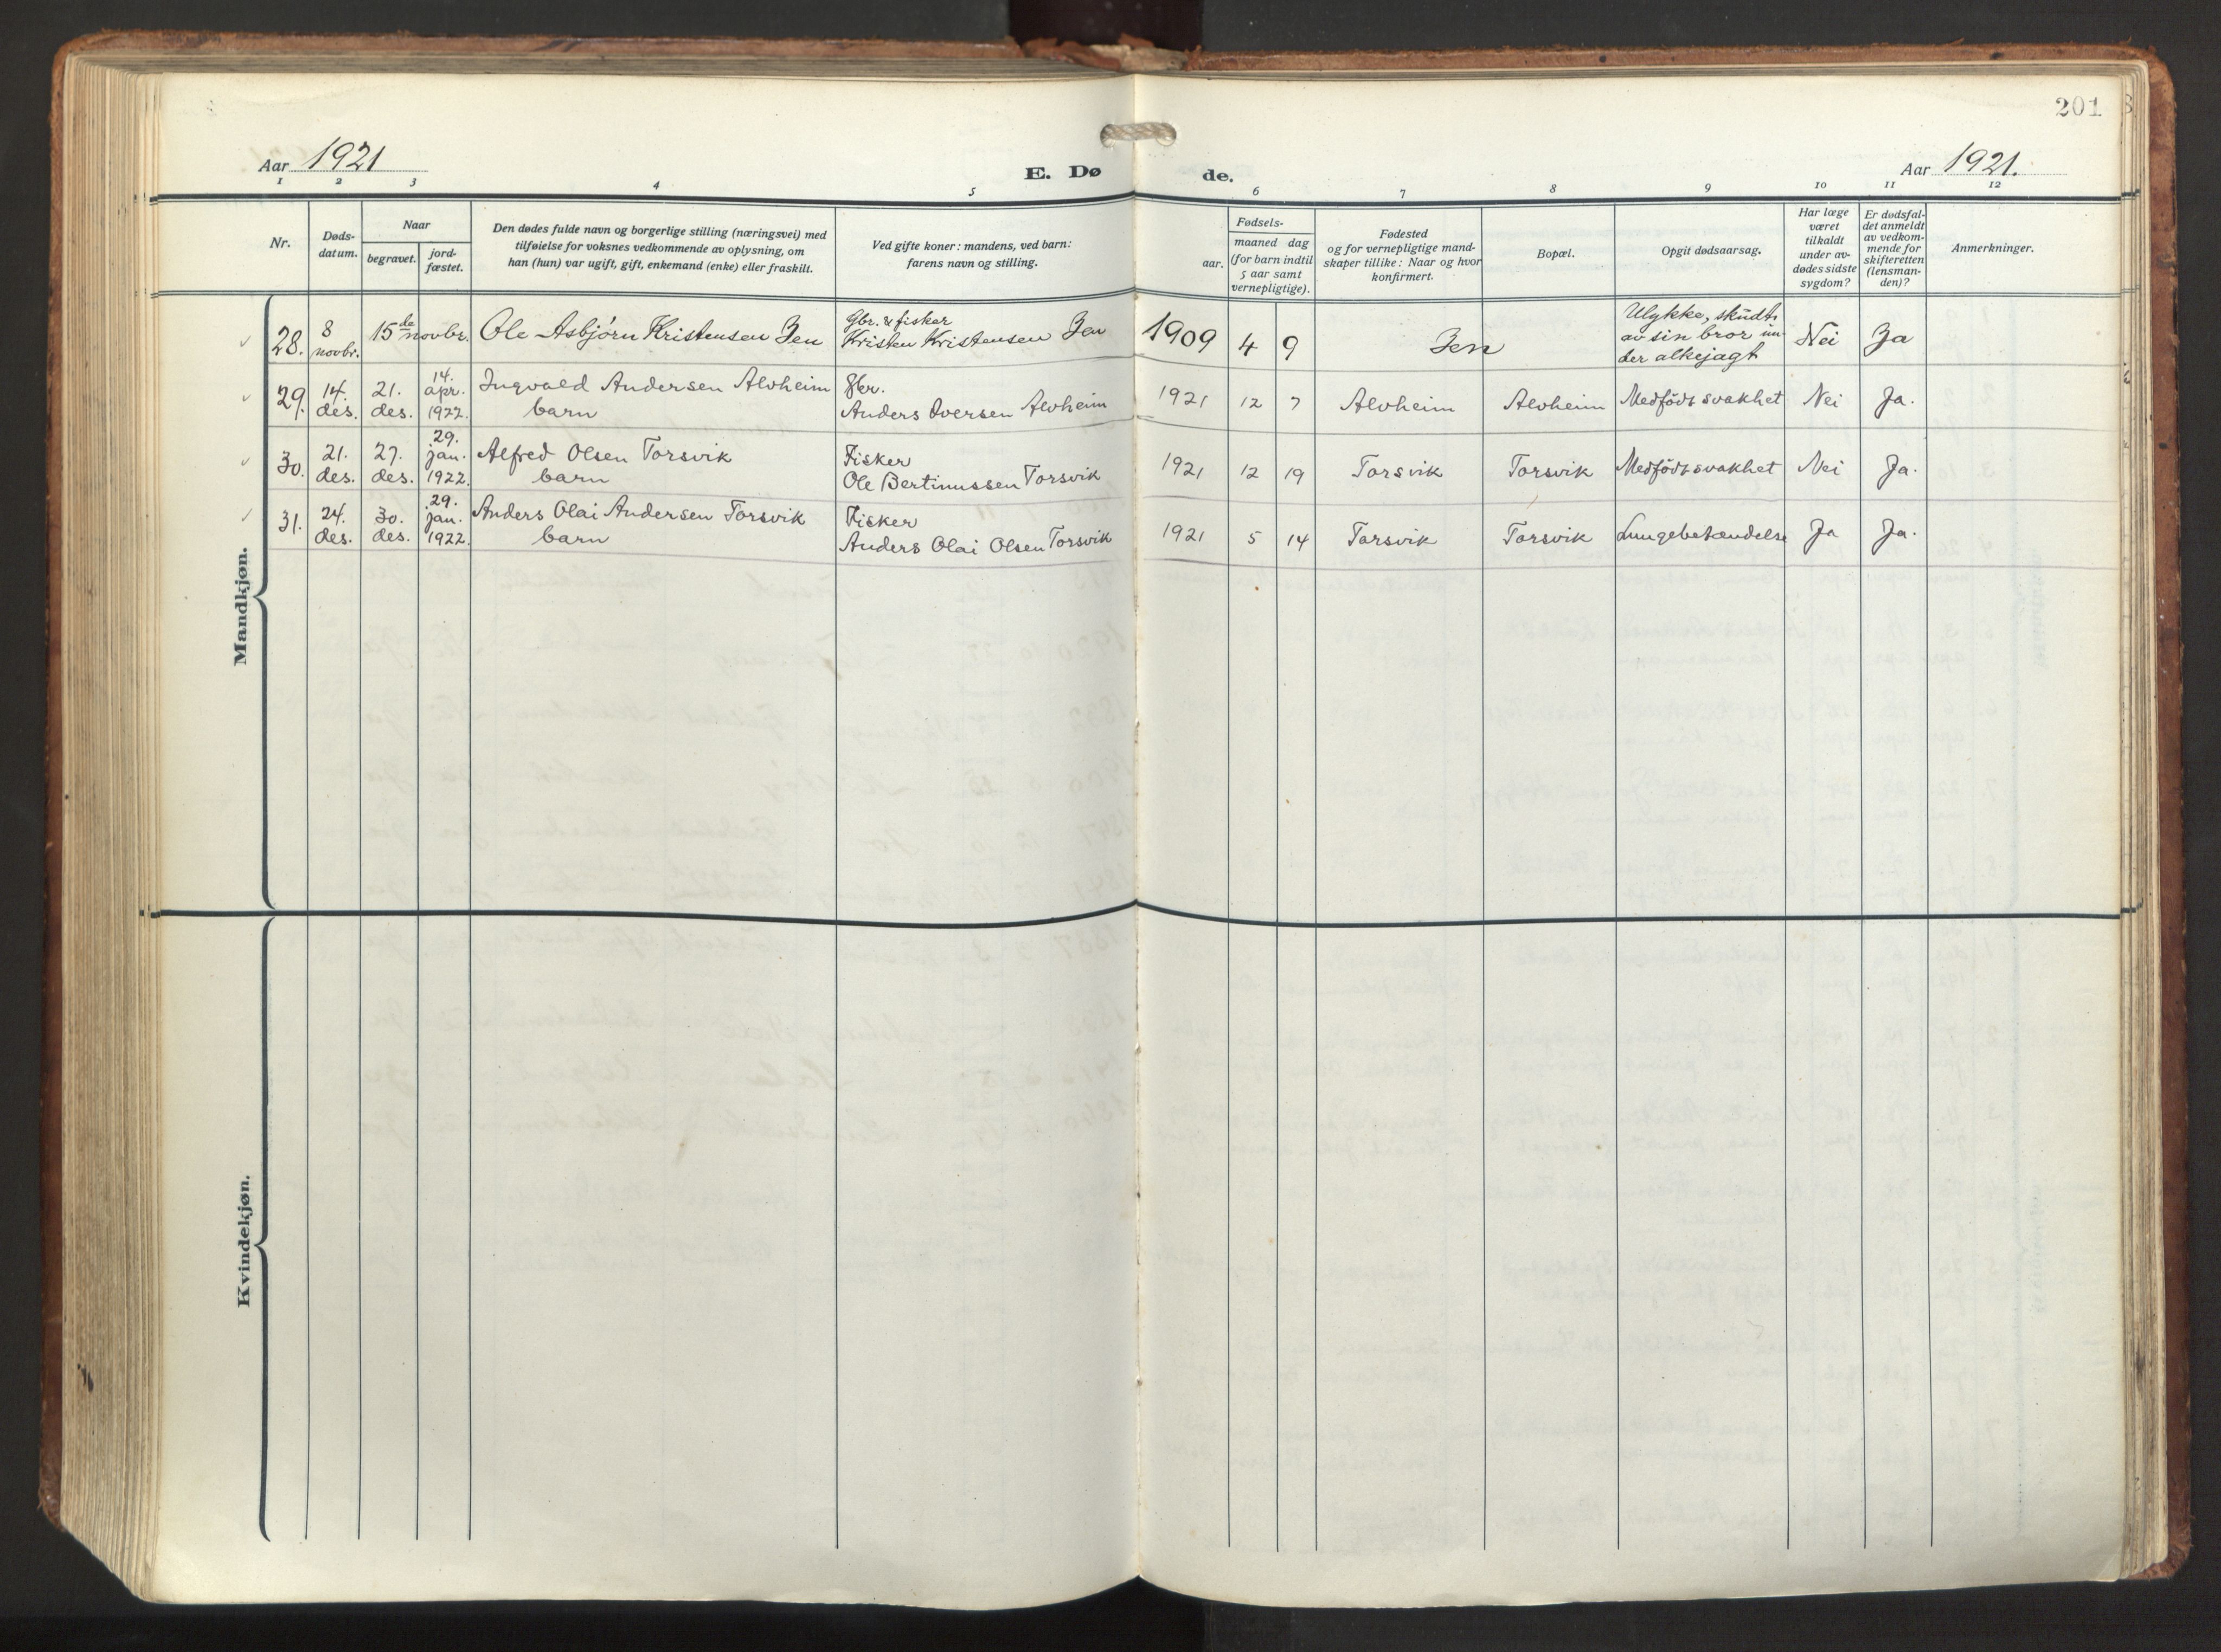 201
Aar 1921
E. Dø de.
Aar 1921.
1 2 3 4 5 6 7 8 9 10 11 12
Nr.
Døds-
datum.
Naar
begravet.
jord-
fæstet.
Den dødes fulde navn og borgerlige stilling (næringsvei) med
tilføielse for voksnes vedkommende av oplysning, om
han (hun) var ugift, gift, enkemand (enke) eller fraskilt.
Ved gifte koner: mandens, ved barn:
farens navn og stilling.
Fødsels-
aar.
maaned dag
(for barn indtil
5 aar samt
vernepligtige).
Fødested
og for vernepligtige mand-
skaper tillike: Naar og hvor
konfirmert.
Bopæl.
Opgit dødsaarsag.
Har læge
været
tilkaldt
under av-
dødes sidste
sygdom?
Er dødsfal-
det anmeldt
av vedkom-
mende for
skifteretten
(lensman-
den)?
Anmerkninger.
Mandkjøn.
28.
8
novbr.
15de novbr.
Ole Asbjørn Kristensen Jen
Gbr. & fisker
Kristen Kristensen Jen
1909 4 9
Jen
Ulykke, skudt
av sin bror un-
der alkejagt
Nei
Ja
29.
14.
des.
21.
des.
14.
apr.
1922.
Ingvald Andersen Alvheim
barn
Gbr.
Anders Iversen Alvheim
1921 12 7
Alvheim
Alvheim
Medfödt svakhet
Nei
Ja.
30.
21.
des.
27.
des.
29.
jan.
1922.
Alfred Olsen Torsvik
barn
Fisker
Ole Bertinussen Torsvik
1921 12 19
Torsvik
Torsvik
Medfödt svakhet
Nei
Ja.
31.
24.
des.
30.
des.
29.
jan.
1922.
Anders Olai Andersen Torsvik
barn
Fisker
Anders Olai Olsen Torsvik
1921 5 14
Torsvik
Torsvik
Lungebetændelse
Ja
Ja.
Kvindekjøn.